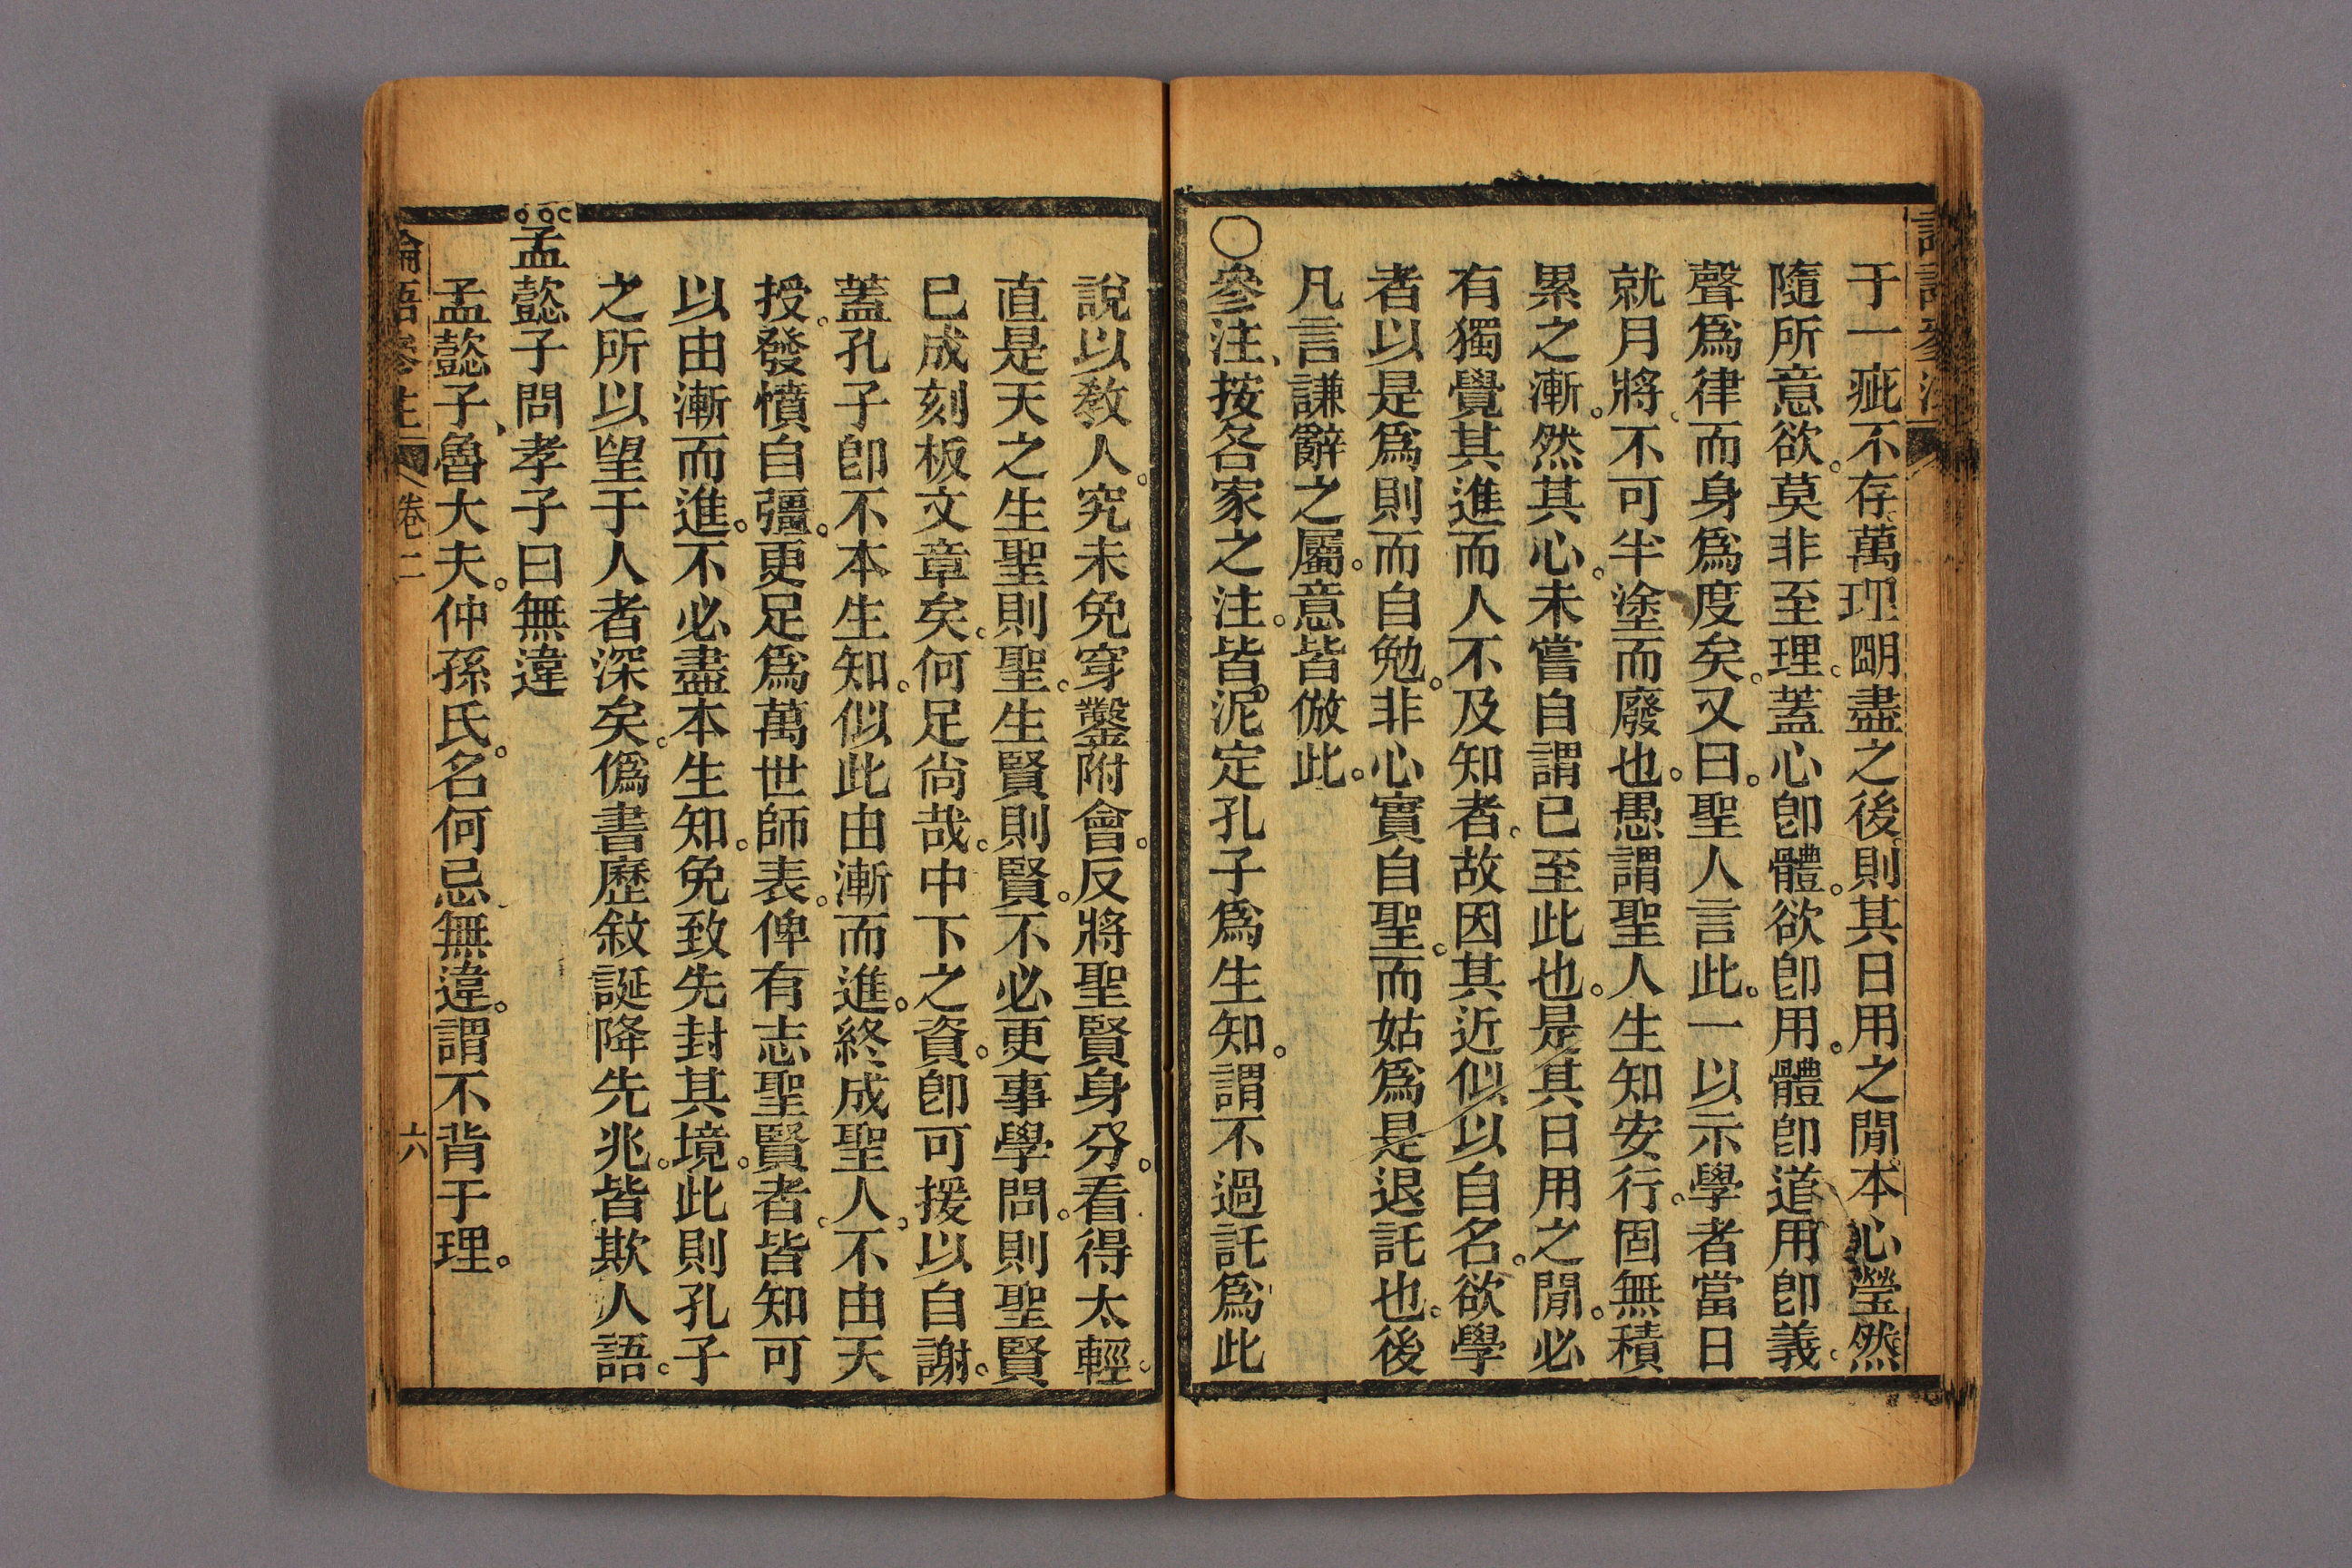 于一疵不存萬理眀盡之後則其日用之閒本心瑩然
隨所意欲。莫非至理。蓋心卽體。欲卽用。體卽道用卽義。
聲爲律而身爲度矣。又曰。聖人言此。一以示學者當日
就月將。不可半塗而廢也。愚謂聖人生知安行。固無積
累之漸。然其心。未嘗自謂已至此也。是其日用之閒。必
有獨覺其進而人不及知者。故因其近似以自名。欲學
者以是爲則而自勉。非心實自聖。而姑爲是退託也。後
凡言謙辭之屬。意皆倣此。
○參注、按各家之注。皆泥定孔子爲生知。謂不過託爲此
說以敎人。究未免穿鑿附會。反將聖賢身分。看得太輕。
直是天之生聖則聖。生賢則賢。不必更事學問。則聖賢
已成刻板文章矣。何足尚哉。中下之資。卽可援以自謝。
蓋孔子卽不本生知。似此由漸而進。終成聖人。不由天
授。發憤自彊。更足爲萬世師表。俾有志聖賢者。皆知可
以由漸而進。不必盡本生知。免致先封其境。此則孔子
之所以望于人者深矣。僞書歷敘誕降先兆。皆欺人語。
孟懿子問孝子曰無違
孟懿子、魯大夫。仲孫氏。名何忌、無違。謂不背于理。
論語參注 卷二 六